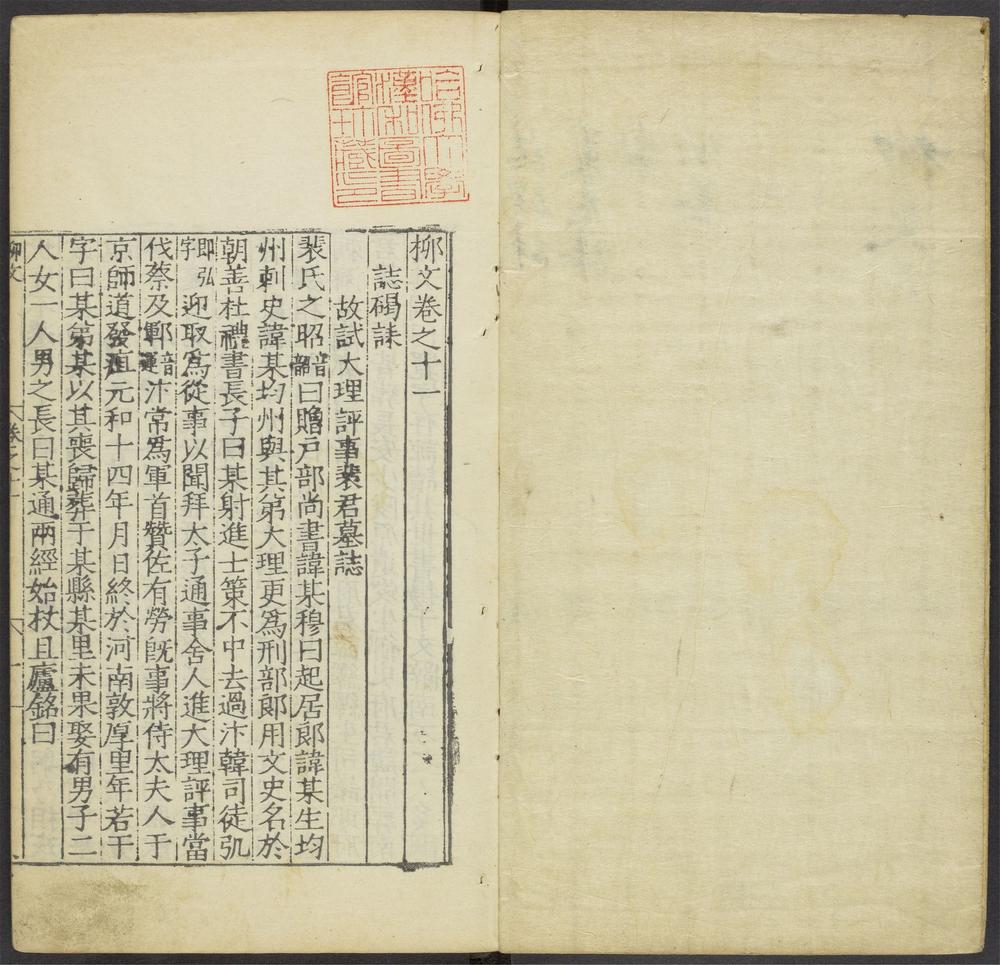 哈佛大學
漢和圖書
館珍藏印
柳文卷之十一
誌碣誄
故試大理評事裴君墓誌
裴氏之昭音韶曰贈戶部尚書諱某穆曰起居郎諱某生均
州刺史諱某均州與其弟大理更爲刑部郎用文史名於
朝善杜禮書長子曰某射進士策不中去過汴韓司徒弘
即弘字迎取爲從事以聞拜太子通事舍人進大理評事當
伐蔡及鄆音運汴常爲軍首贊佐有勞旣事將侍太夫人于
京師道發疽元和十四年月日終於河南敦厚里年若干
字曰某弟某以其喪歸葬于某縣某里未果娶有男子二
人女一人男之長曰某通兩經始杖且廬銘曰
柳文
卷之十一
一